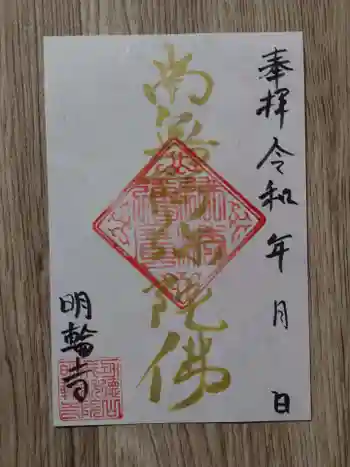 奉拝 令和 年 月 日
南無阿弥陀佛
明輪寺